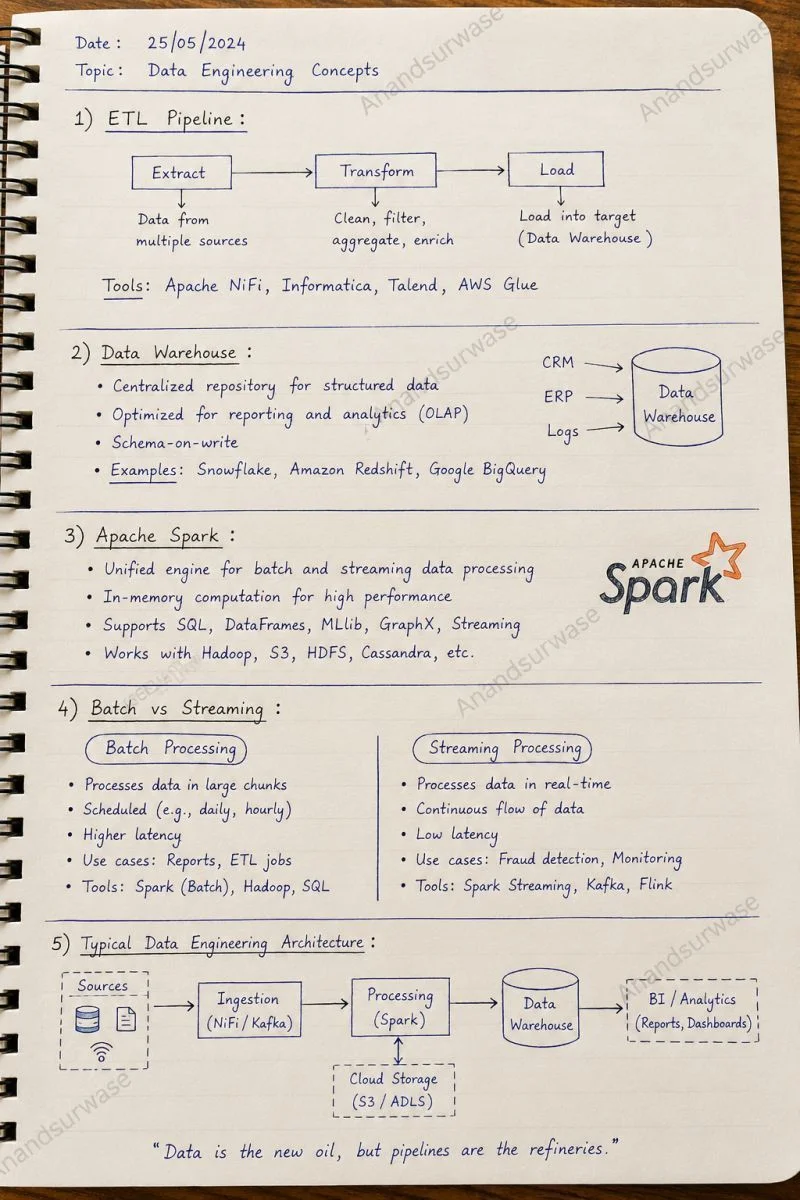 Date : 25/05/2024
Topic : Data Engineering Concepts
1) ETL Pipeline :
Extract
Transform
Load
Data from
multiple sources
Clean, filter,
aggregate, enrich
Load into target
(Data Warehouse)
Tools: Apache NiFi, Informatica, Talend, AWS Glue
2) Data Warehouse :
• Centralized repository for structured data
• Optimized for reporting and analytics (OLAP)
• Schema-on-write
• Examples: Snowflake, Amazon Redshift, Google BigQuery
CRM
ERP
Logs
Data
Warehouse
3) Apache Spark :
• Unified engine for batch and streaming data processing
• In-memory computation for high performance
• Supports SQL, DataFrames, MLlib, GraphX, Streaming
• Works with Hadoop, S3, HDFS, Cassandra, etc.
APACHE
Spark
4) Batch vs Streaming :
Batch Processing
• Processes data in large chunks
• Scheduled (e.g., daily, hourly)
• Higher latency
• Use cases: Reports, ETL jobs
• Tools: Spark (Batch), Hadoop, SQL
Streaming Processing
• Processes data in real-time
• Continuous flow of data
• Low latency
• Use cases: Fraud detection, Monitoring
• Tools: Spark Streaming, Kafka, Flink
5) Typical Data Engineering Architecture :
Sources
Ingestion
(NiFi / Kafka)
Processing
(Spark)
Data
Warehouse
BI / Analytics
(Reports, Dashboards)
Cloud Storage
(S3 / ADLS)
"Data is the new oil, but pipelines are the refineries."
Anandsurwase
Anandsurwase
Anandsurwase
Anandsurwase
Anandsurwase
Anandsurwase
Anandsurwase